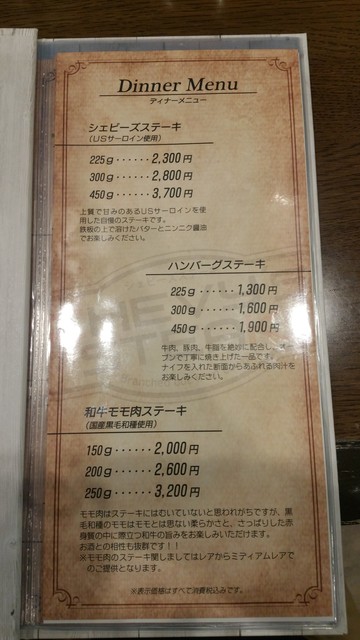 Dinner Menu
ディナーメニュー
シェビーズステーキ
(USサーロイン使用)
225g・・・・・・2,300円
300g・・・・・・2,800円
450g・・・・・・3,700円
上質で甘みのあるUSサーロインを使
用した自慢のステーキです。
鉄板の上で溶けたバターとニンニク醤油
でお楽しみください。
ハンバーグステーキ
225g・・・・・・1,300円
300g・・・・・・1,600円
450g・・・・・・1,900円
牛肉、豚肉、牛脂を絶妙に配合し、オー
ブンで丁寧に焼き上げた一品です。
ナイフを入れた断面からあふれる肉汁を
お楽しみください。
和牛モモ肉ステーキ
(国産黒毛和種使用)
150g・・・・・・2,000円
200g・・・・・・2,600円
250g・・・・・・3,200円
モモ肉はステーキにはむいていないと思われがちですが、黒
毛和種のモモはモモとは思ない柔らかさと、さっぱりした赤
身質の中に際立つ和牛の旨みをお楽しみいただけます。
お酒との相性も抜群です！！
※モモ肉のステーキ関しましてはレアからミディアムレアで
のご提供となります。
※表示価格はすべて消費税込みです。